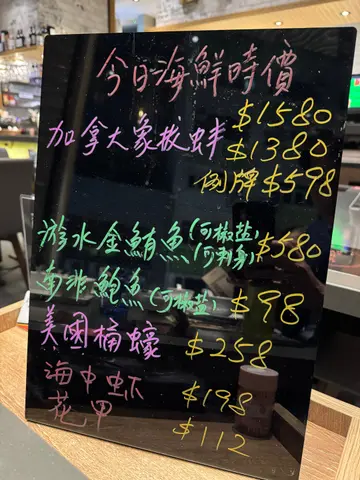 今日海鮮時價
$1580
加拿大象拔蚌 $1380
例牌 $598
游水金鯆魚(可椒盐)(可刺身) $580
南非鮑魚(可椒盐) $98
美國桶蠔 $258
海中虾 $198
花甲 $112